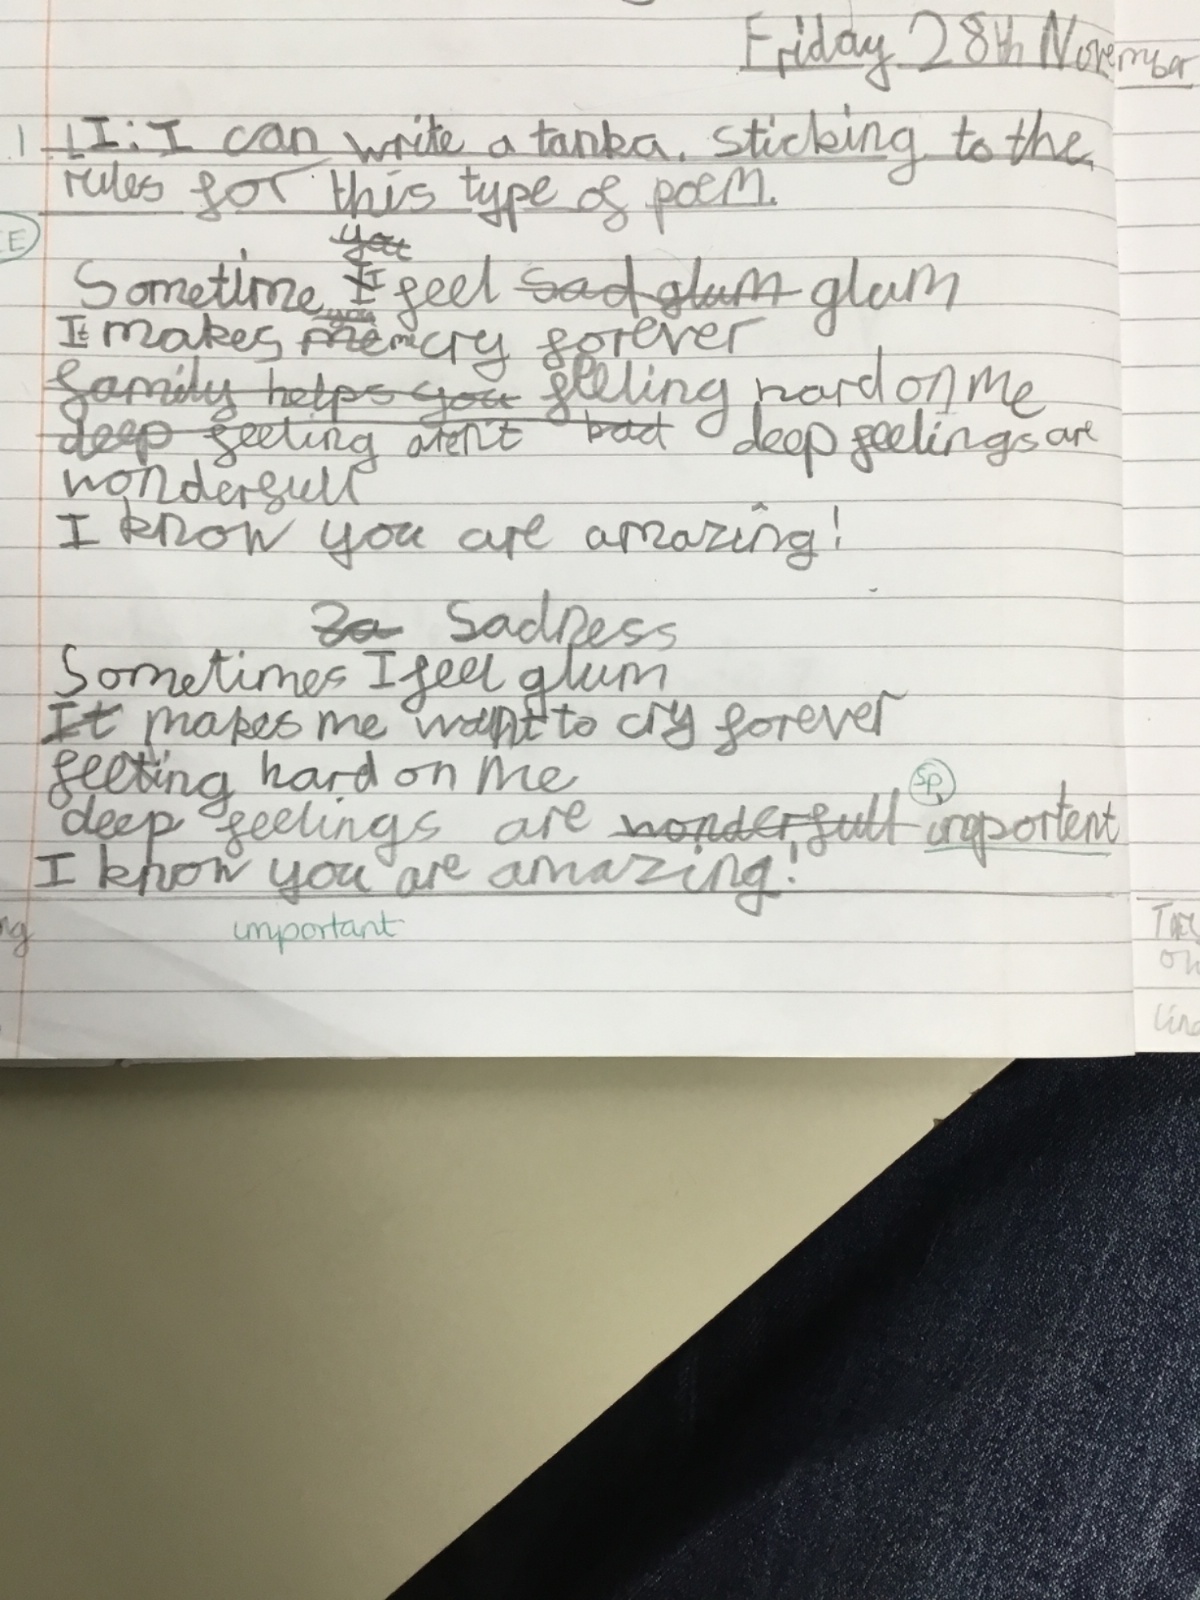 Friday 28th November
1 LI: I can write a tanka, sticking to the
rules for this type of poem.
E
you
Sometime I feel sad glum glum
you
It makes me me cry forever
family helps you feeling hard on me
deep feeling aren't bad deep feelings are
wonderfull
I know you are amazing!
Za Sadness
Sometimes I feel glum
It makes me want to cry forever
feeling hard on me
sp
deep feelings are wonderfull importent
I know you are amazing!
ng
important
on